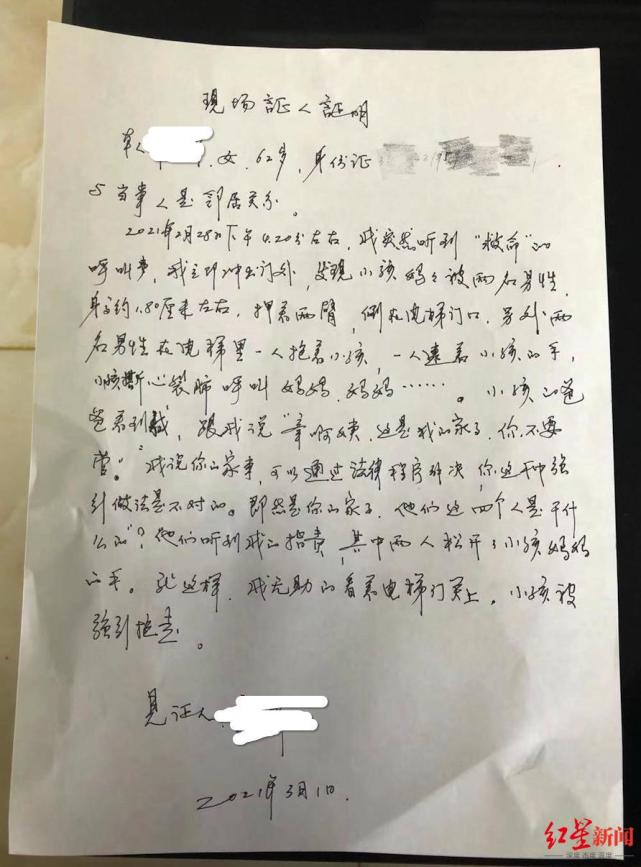 現场証人証明
本人 女.62岁,身份证
与当事人是邻居关系。
2021年2月28日下午4.20分左右,我突然听到“救命”的
呼叫声,我立即冲出门外,发现小孩妈妈被两名男性,
身高约1.80厘米左右,押着两臂,倒在电梯门口,另外两
名男性在电梯里一人抱着小孩,一人逮着小孩的手,
小孩撕心裂肺呼叫妈妈,妈妈……。小孩的爸
爸看到我,跟我说“章啊姨,这是我的家事,你不要
管。”我说你的家事,可以通过法律程序解决,你这种强
引做法是不对的。即然是你的家事,他们这四个人是干什
么的”?他们听到我的指责,其中两人松开了小孩妈妈
的手。就这样,我无助的看着电梯门关上,小孩被
强引抱走。
见证人
2021年3月1日.
红星新闻
深度 态度 温度